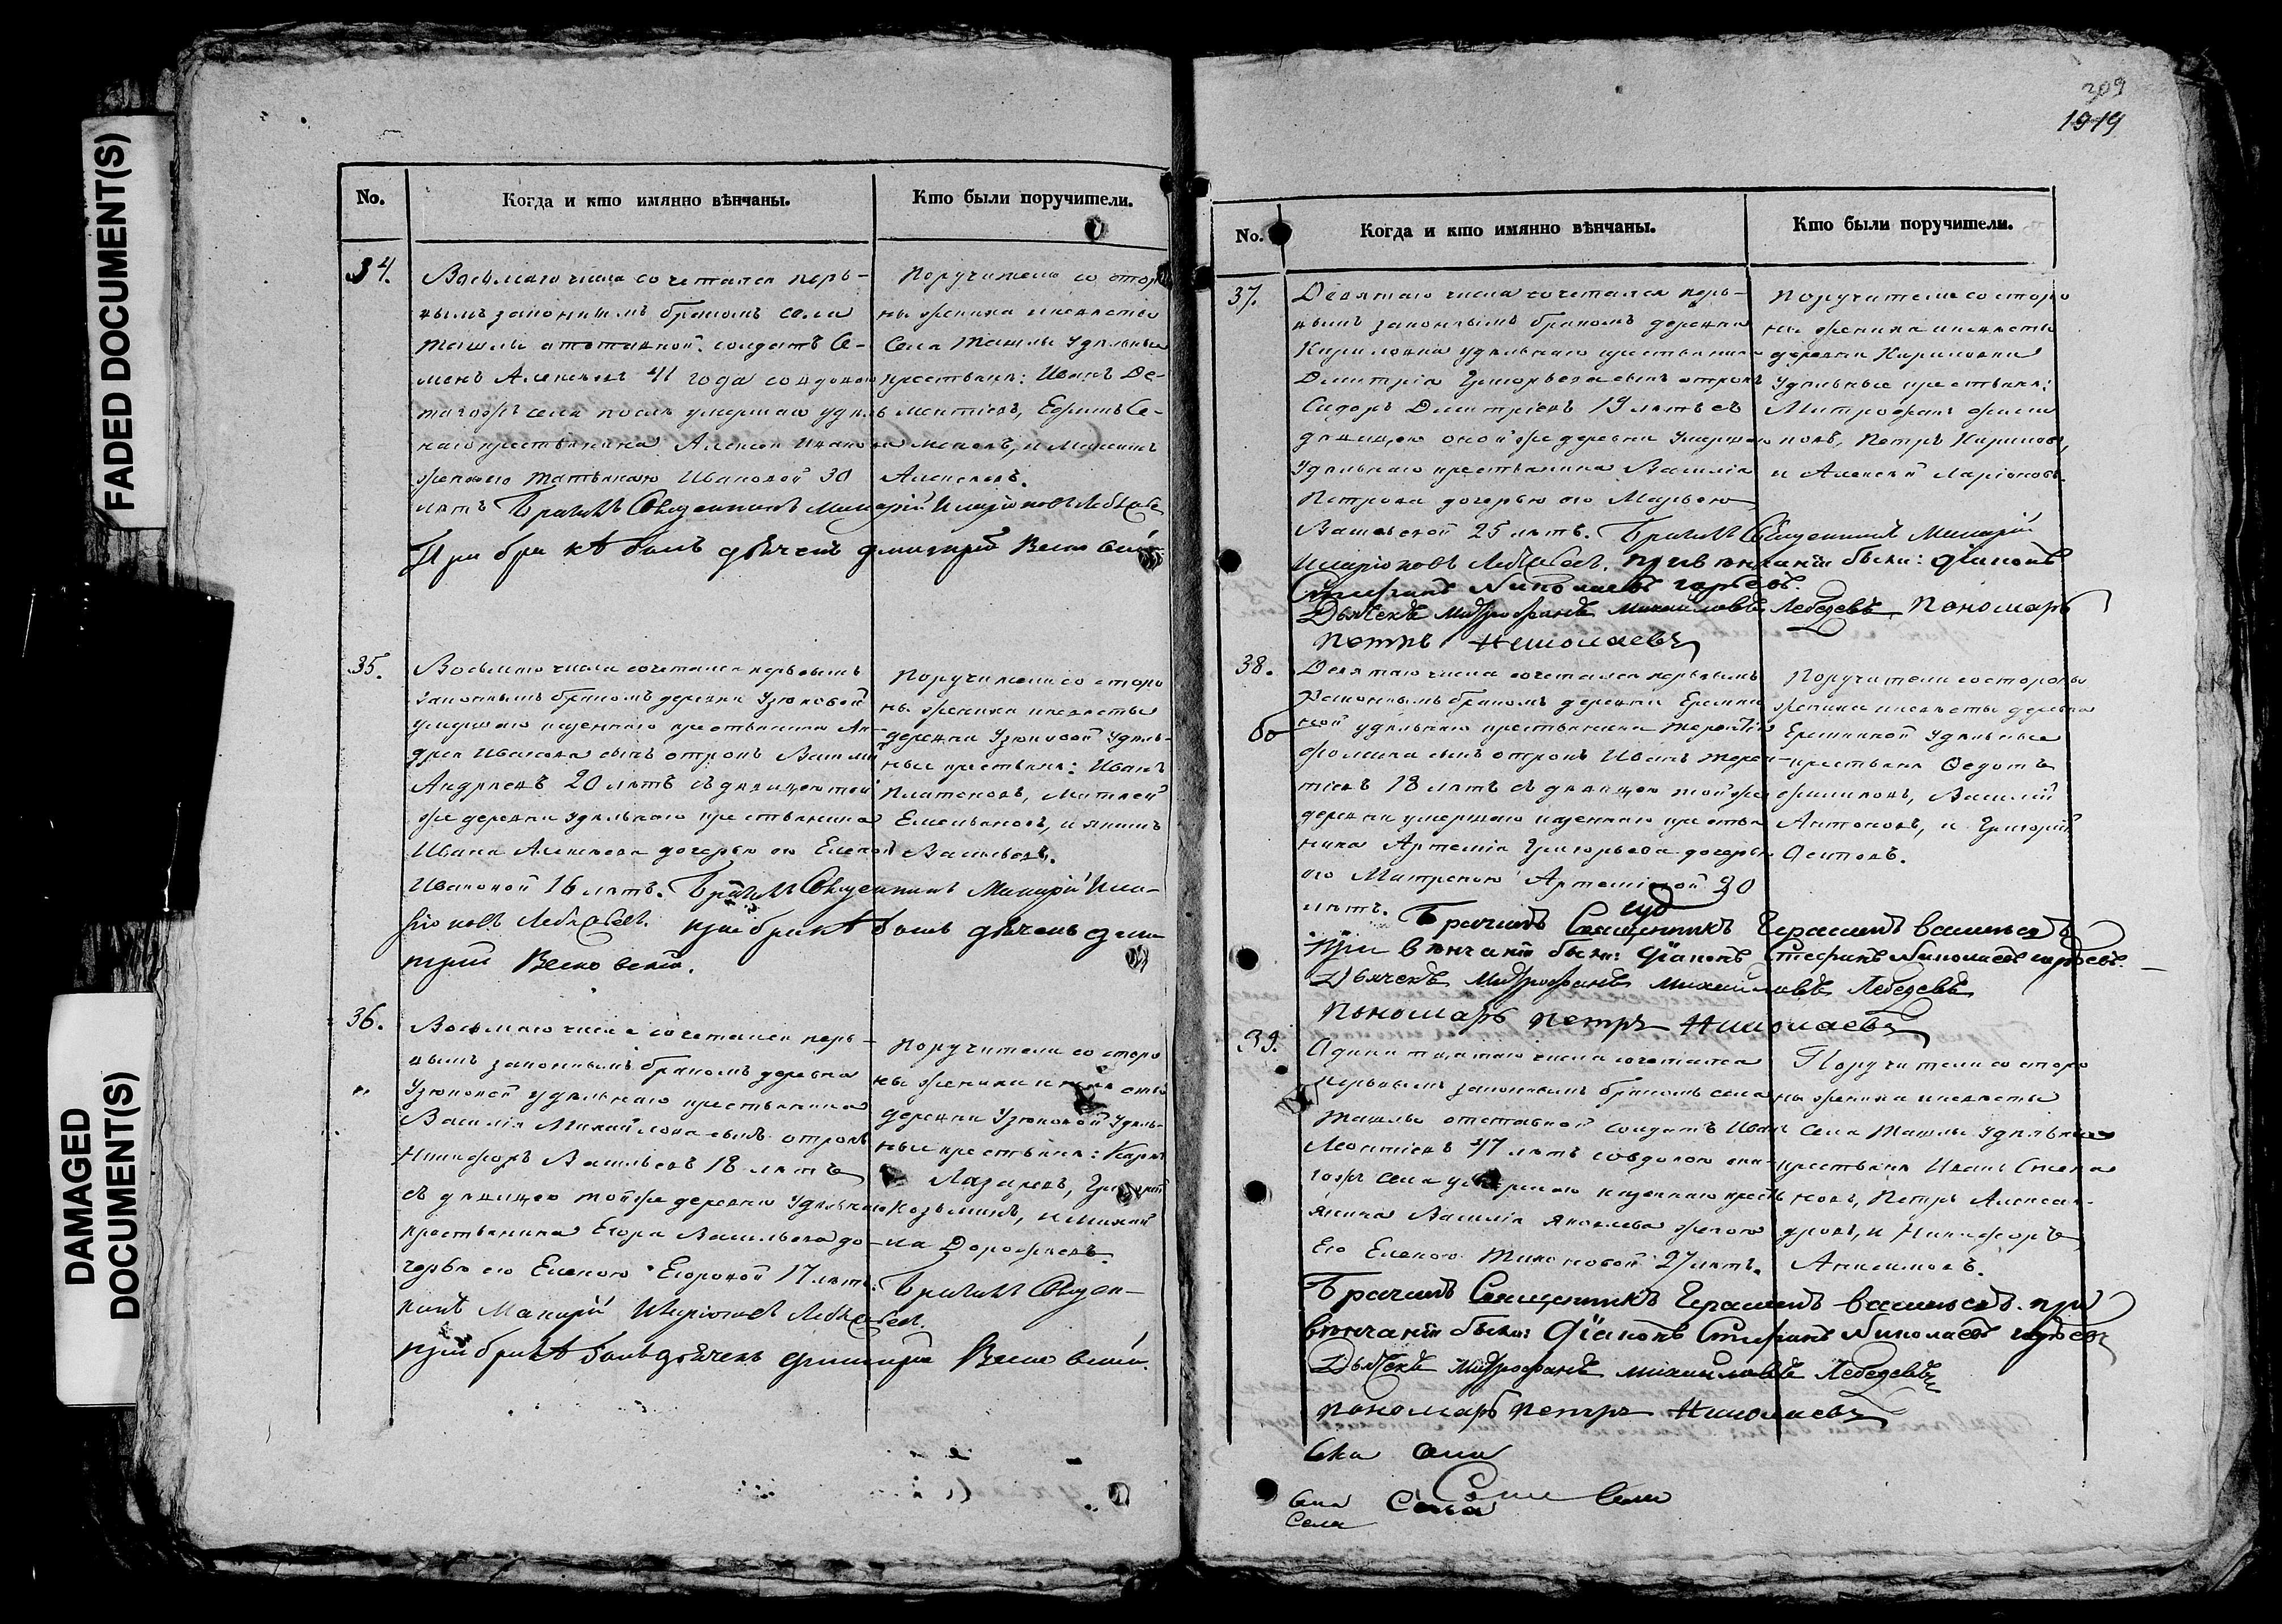 FADED DOCUMENT(S)
DAMAGED
DOCUMENT(S)
309
1919
No.
Когда и кто имянно вѣнчаны.
Кто были поручители.
34.
Восьмаго числа сочетался пер-
вымъ законнымъ бракомъ села
Ташлы отставной солдатъ Се-
менъ Алексѣевъ 41 года со вдовою
тогожъ села послѣ умершаго удѣль
наго крестьянина Алексѣя Иванова
женою его Татьяною Ивановой 30
лѣтъ Бракилъ Священникъ Макарій Иларіоновъ Лебедевъ
При бракѣ былъ дьячекъ Дмитрій
Поручители со сторо
ны жениха и невѣсты
Села Ташлы Удѣльные
крестьяне: Иванъ Де-
ментіевъ, Ефимъ Се-
меновъ, и Максимъ
Алексѣевъ.
35.
Восьмаго числа сочетался первымъ
законнымъ бракомъ деревни Узюковой
умершаго казеннаго крестьянина Ан-
дрея Иванова сынъ отрокъ Василій
Андреевъ 20 лѣтъ съ дѣвицею той
же деревни Удѣльнаго крестьянина
Ивана Алексѣева дочерью его Еленой
Ивановой 16 лѣтъ. Бракилъ Священникъ Макарій Ила-
ріоновъ Лебедевъ. При бракѣ былъ дьячекъ Дми
трій
Поручители со сторо
ны жениха и невѣсты
деревни Узюковой Удѣль-
ные крестьяне: Иванъ
Платоновъ, Матвей
Емельяновъ, и Якимъ
Васильевъ.
36.
Восьмаго числа сочетался пер-
вымъ законнымъ бракомъ деревни
Узюковой удѣльнаго крестьянина
Василія Михайлова сынъ отрокъ
Никифоръ Васильевъ 18 лѣтъ
съ дѣвицею тойже деревни Удѣльнаго
крестьянина Егора Васильева до-
черью его Еленою Егоровой 17 лѣтъ. Бракилъ Священ-
никъ Макарій Иларіоновъ Лебедевъ.
При бракѣ былъ дьячекъ Дмитрій
Поручители со сторо
ны жениха и невѣсты
деревни Узюковой Удѣль-
ные крестьяне: Карпъ
Лазаревъ, Григорій
Козьминъ, и Михай
ла Дорофѣевъ.
No.
Когда и кто имянно вѣнчаны.
Кто были поручители.
37.
Девятаго числа сочетался пер-
вымъ законнымъ бракомъ деревни
Кириловки удѣльнаго крестьянина
Дмитрія Григорьева сынъ отрокъ
Сидоръ Дмитріевъ 19 лѣтъ съ
дѣвицею оной же деревни Умершаго
Удѣльнаго крестьянина Василія
Петрова дочерью его Марьею
Васильевой 25 лѣтъ. Бракилъ Священникъ Макарій
Иларіоновъ Лебедевъ. При вѣнчаніи были: Діаконъ
Стефанъ Николаевъ
Дьячекъ Митрофанъ Михаиловъ Лебедевъ, Пономарь
Петръ Николаевъ
Поручители со сторо
ны жениха и невѣсты
деревни Кириловки
Удѣльные крестьяне:
Митрофанъ Филип
повъ, Петръ Кириловъ,
и Алексѣй Ларіоновъ.
38.
Девятаго числа сочетался первымъ
Законнымъ бракомъ деревни Еремки
ной удѣльнаго крестьянина Терентія
Фомина сынъ отрокъ Иванъ Терен-
тіевъ 18 лѣтъ съ дѣвицею той же
деревни умершаго казеннаго крестья
нина Артемія Григорьева дочерью
его Матреною Артеміевой 20
лѣтъ. Брачилъ Священникъ Герасимъ Васильевъ
При вѣнчаніи были: Діаконъ Стефанъ Николаевъ
Дьячекъ Митрофанъ Михаиловъ Лебедевъ
Пономарь Петръ Николаевъ
Поручители со стороны
жениха и невѣсты деревни
Еремкиной Удѣльные
крестьяне Ѳедотъ
Филиповъ, Василій
Антоновъ, и Григорій
Осиповъ.
39.
Одинатцатаго числа сочетался
первымъ законнымъ бракомъ села
Ташлы отставной солдатъ Иванъ
Леонтіевъ 47 лѣтъ со вдовою она-
гожъ села умершаго казеннаго кресть
янина Василія Яковлева женою
Его Еленою Тихоновой 27 лѣтъ.
Брачилъ Священникъ Герасимъ Васильевъ. При
вѣнчаніи были: Діаконъ Стефанъ Николаевъ
Дьячекъ Митрофанъ Михаиловъ Лебедевъ
Пономарь Петръ Николаевъ
Поручители со сторо
ны жениха и невѣсты
Села Ташлы Удѣльные
крестьяне Иванъ Степа
новъ, Петръ Алексан-
дровъ, и Никифоръ
Анисимовъ.
Села
Села